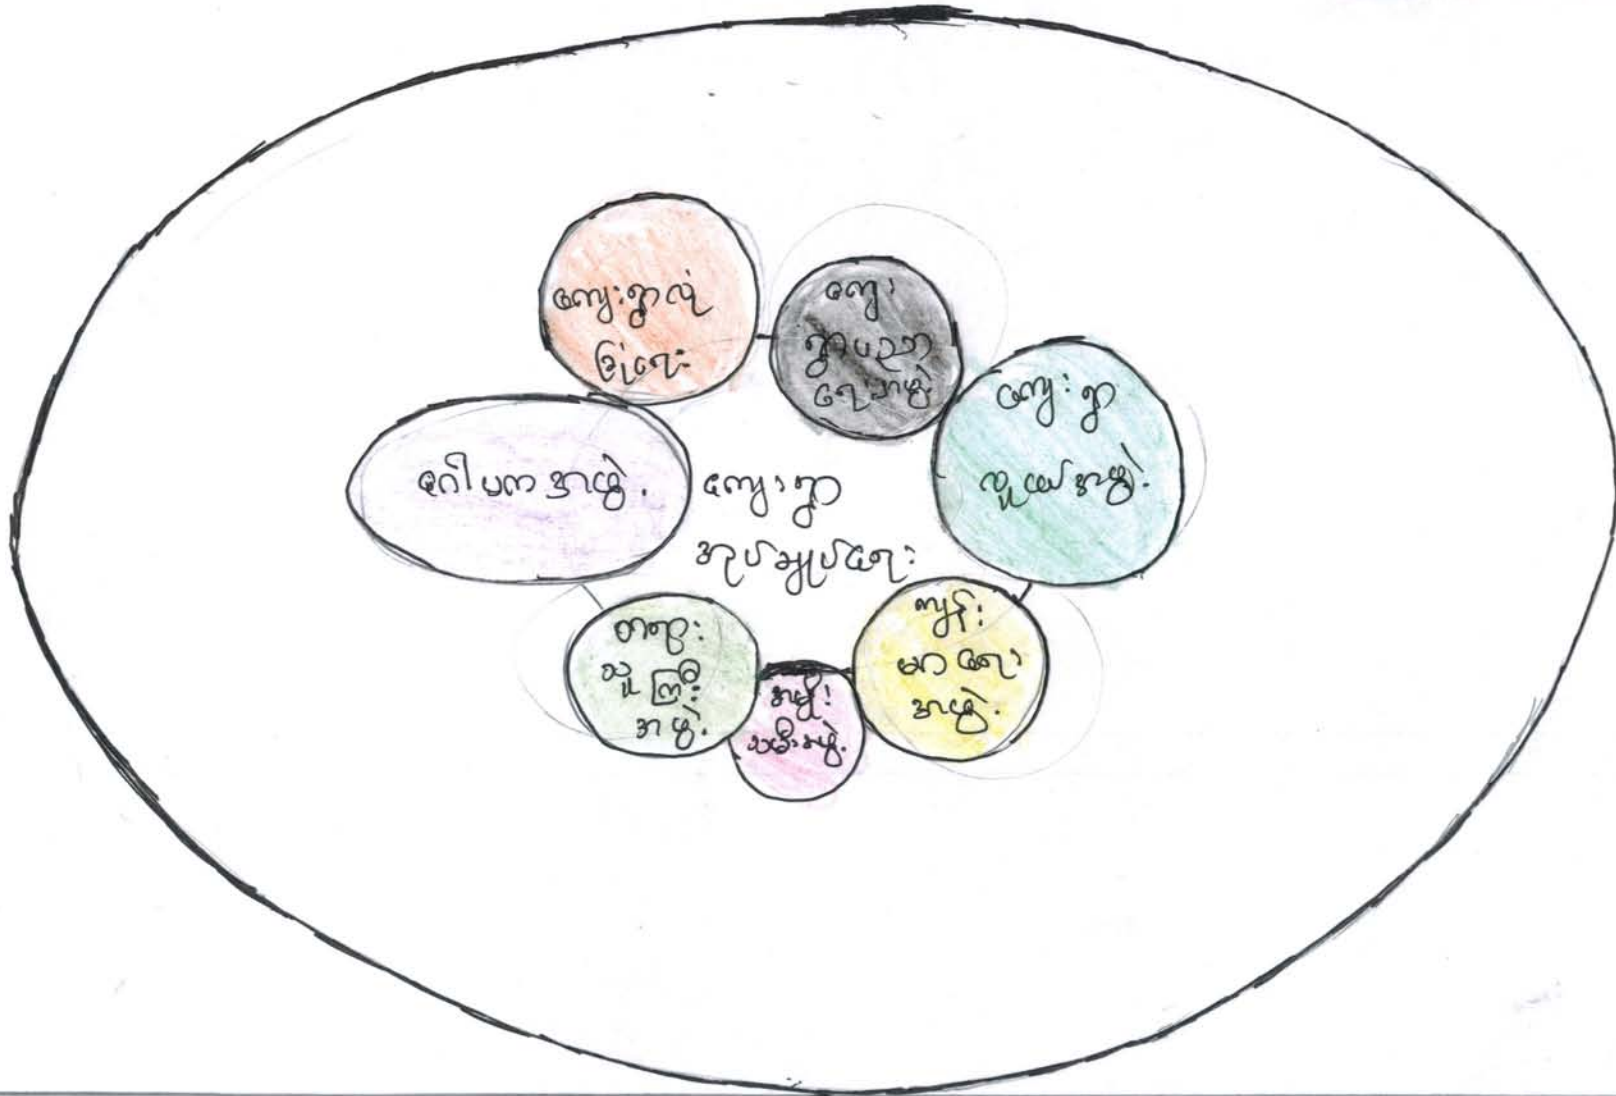 ကျေးရွာလုံ
ခြုံရေး
ကျေး
ရွာပညာ
ရေးအဖွဲ့
ကျေးရွာ
လူငယ်အဖွဲ့
ဂေါပကအဖွဲ့
ကျေးရွာ
အုပ်ချုပ်ရေး
တရား
သူကြီး
အဖွဲ့
အမျိုး
သမီးအဖွဲ့
ကျန်း
မာရေး
အဖွဲ့